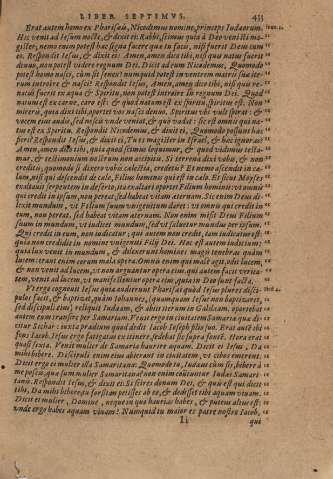 LIBER SEPTIMVS. 433
Erat autem homo ex Pharisæis, Nicodemus nomine, princeps Iudæorum. Ioan. 3.
Hic venit ad Iesum nocte, & dixit ei: Rabbi, scimus quia à Deo venisti ma-
gister; nemo enim potest hæc signa facere quæ tu facis, nisi fuerit Deus cum
eo. Respondit Iesus, & dixit ei: Amen, amen dico tibi, nisi quis natus fuerit
denuo, non potest videre regnum Dei. Dicit ad eum Nicodemus, Quomodo
potest homo nasci, cùm sit senex? numquid potest in ventrem matris suæ ite-
rum introire & nasci? Respondit Iesus, Amen, amen dico tibi, nisi quis re-
natus fuerit ex aqua & Spiritu, non potest introire in regnum Dei. Quod
natum est ex carne, caro est: & quod natum est ex spiritu, spiritus est. Non
mireris, quia dixi tibi, oportet vos nasci denuo. Spiritus vbi vult spirat: &
vocem eius audis, sed nescis vnde veniat, & quo vadat: sic est omnis qui na-
tus est ex Spiritu. Respondit Nicodemus, & dixit ei, Quomodo possunt hæc
fieri? Respondit Iesus, & dixit ei, Tu es magister in Israel, & hæc ignoras?
Amen, amen dico tibi, quia quod scimus loquimur, & quod vidimus testa-
mur, & testimonium nostrum non accipitis. Si terrena dixi vobis, & non
creditis; quomodo si dixero vobis cælestia, credetis? Et nemo ascendit in cæ-
lum, nisi qui descendit de cælo, Filius hominis qui est in cælo. Et sicut Moyses
exaltauit serpentem in deserto, ita exaltari oportet Filium hominis: vt omnis
qui credit in ipsum, non pereat, sed habeat vitam æternam. Sic enim Deus di-
lexit mundum, vt Filium suum vnigenitum daret: vt omnis qui credit in
eum, non pereat, sed habeat vitam æternam. Non enim misit Deus Filium
suum in mundum, vt iudicet mundum, sed vt saluetur mundus per ipsum.
Qui credit in eum, non iudicatur; qui autem non credit, iam iudicatus est:
quia non credidit in nomine vnigeniti Filij Dei. Hoc est autem iudicium;
quia lux venit in mundum, & dilexerunt homines magis tenebras quàm
lucem: erant enim eorum mala opera. Omnis enim qui malè agit, odit lucem,
& non venit ad lucem, vt non arguantur opera eius. qui autem facit verita-
tem, venit ad lucem, vt manifestentur opera eius, quia in Deo sunt facta.
Vt ergo cognouit Iesus quia audierunt Pharisæi quòd Iesus plures disci- Ibid. 4.
pulos facit, & baptizat, quàm Iohannes, (quamquam Iesus non baptizaret,
sed discipuli eius) reliquit Iudæam, & abiit iterum in Galilæam. oportebat
autem eum transire per Samariam. Venit ergo in ciuitatem Samariæ quæ di-
citur Sichar: iuxta prædium quod dedit Iacob Ioseph filio suo. Erat autē ibi
fons Iacob. Iesus ergo fatigatus ex itinere, sedebat sic supra fontē. Hora erat
quasi sexta. Venit mulier de Samaria haurire aquam. Dicit ei Iesus, Da
mihi bibere. Discipuli enim eius abierant in ciuitatem, vt cibos emerent.
Dicit ergo ei mulier illa Samaritana: Quomodo tu, Iudæus cùm sis, bibere à
me poscis, quæ sum mulier Samaritana? non enim coutuntur Iudæi Samari-
tanis. Respondit Iesus, & dixit ei: Si scires donum Dei, & quis est qui dicit
tibi, Da mihi bibere: tu forsitan petisses ab eo, & dedisset tibi aquam viuam.
Dicit ei mulier, Domine, neque in quo haurias habes, & puteus altus est:
vnde ergo habes aquam viuam? Numquid tu maior es patre nostro Iacob,
Ii qui